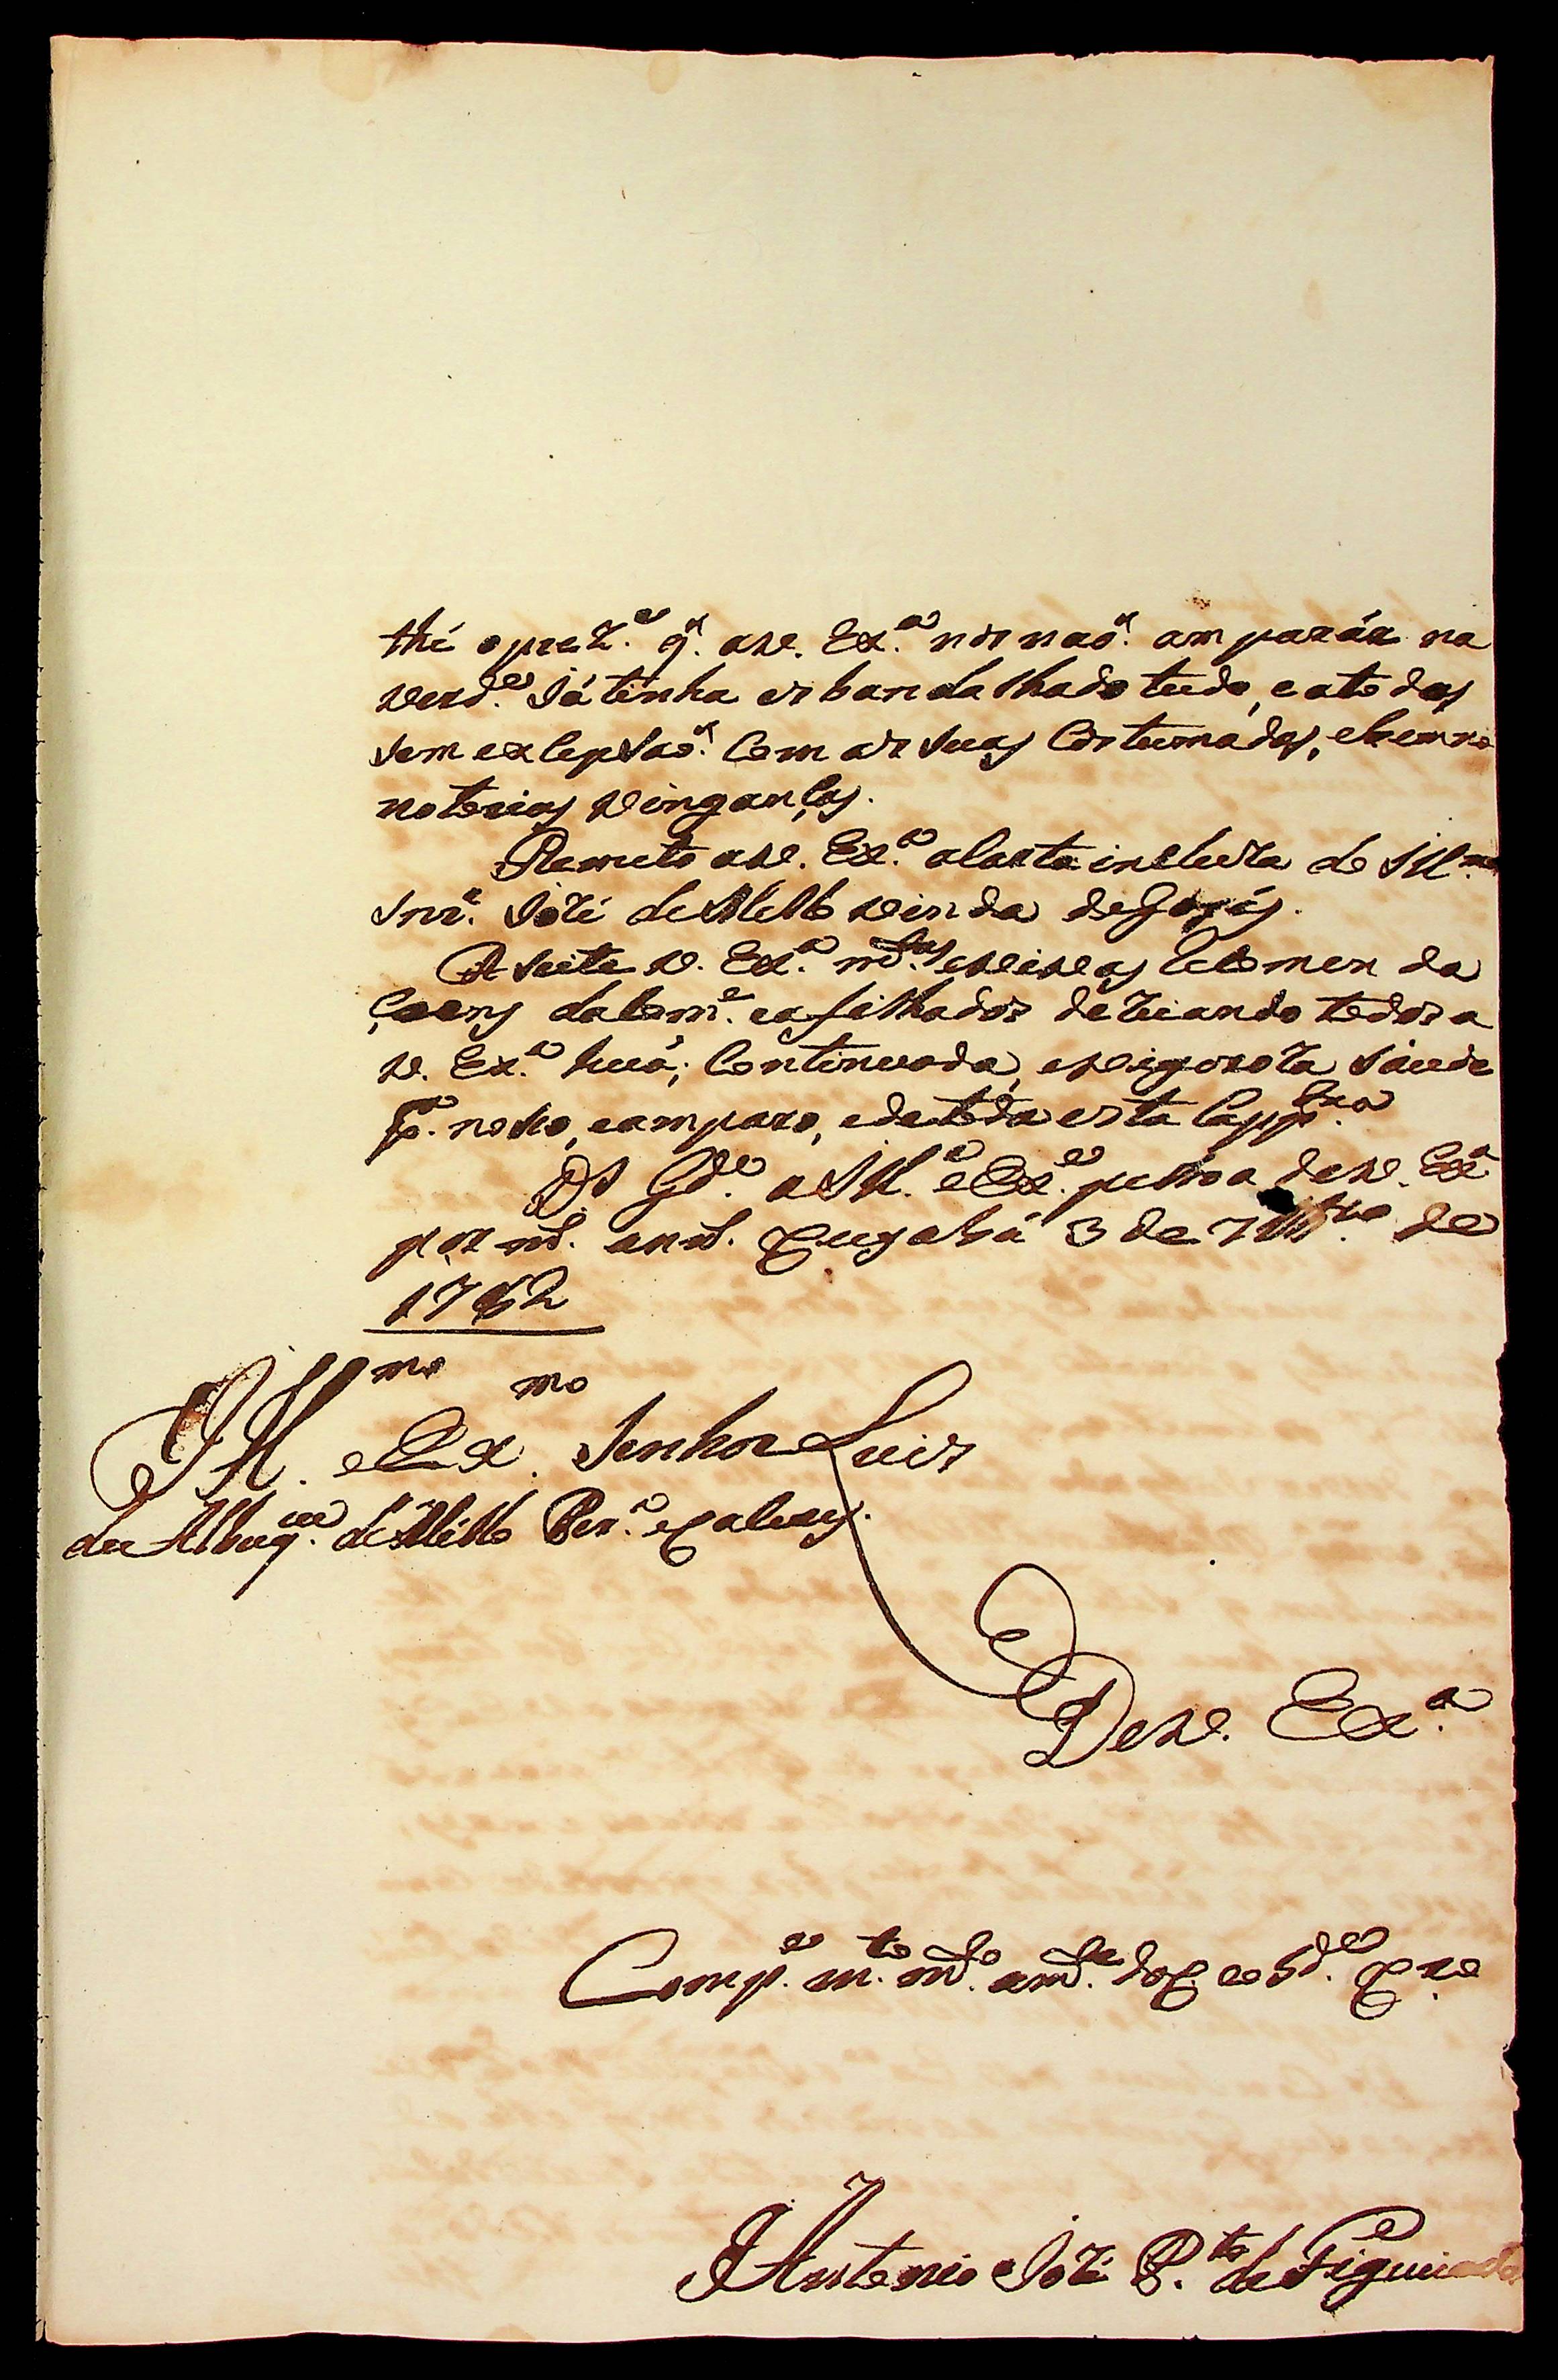 thé o prez.e q. a V. Ex.a nos naõ amparár na
verd.e Já tinha esbandalhado tudo, e atodos
sem excepsaõ Com as suas Costumadas, e bem
notorias vinganças.
Remeto a V. Ex.a a Carta incluza do Ill.mo
Snr. Jozé de Mello vinda de Goyás.
A Seite V. Ex.a m.tas e vivas Recomen da
çoens da Com.e e afilhados dezejando todos a
V. Ex.a huá; Continuada, e vigoroza Saude
p.a noso, e amparo, e de toda esta Capp.nia
D.s G.de a Ill.e e Ex.e pessoa de V. Ex.a
por m. ann. Cuyabá 3 de 7br.o de
1782
Ill.mo e Ex.mo Senhor Luis
de Albuq.ue de Mello Per.a e Caceres.
De V. Ex.a
Comp.e m.to
Antonio Jozé P.to de Figueiredo